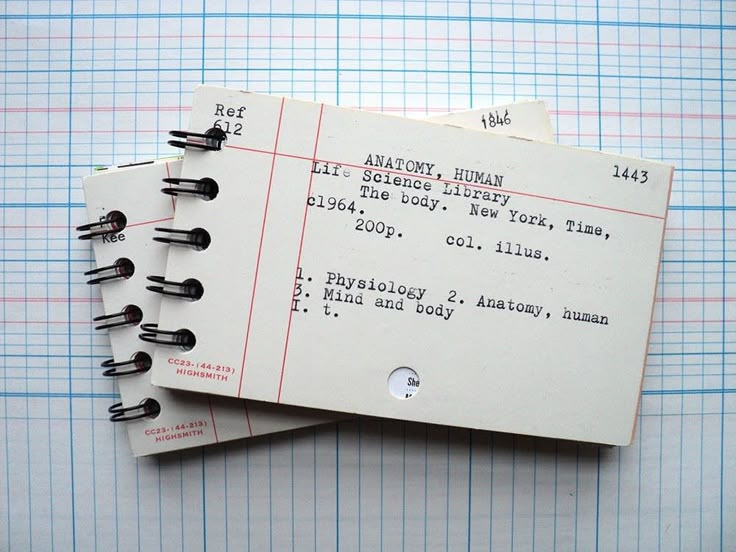 Ref
612
ANATOMY, HUMAN
1443
Life Science Library
The body. New York, Time,
c1964.
200p. col. illus.
1. Physiology 2. Anatomy, human
3. Mind and body
I. t.
CC23-(44-213)
HIGHSMITH
She
1846
Kee
CC23-(44-213)
HIGHSMITH